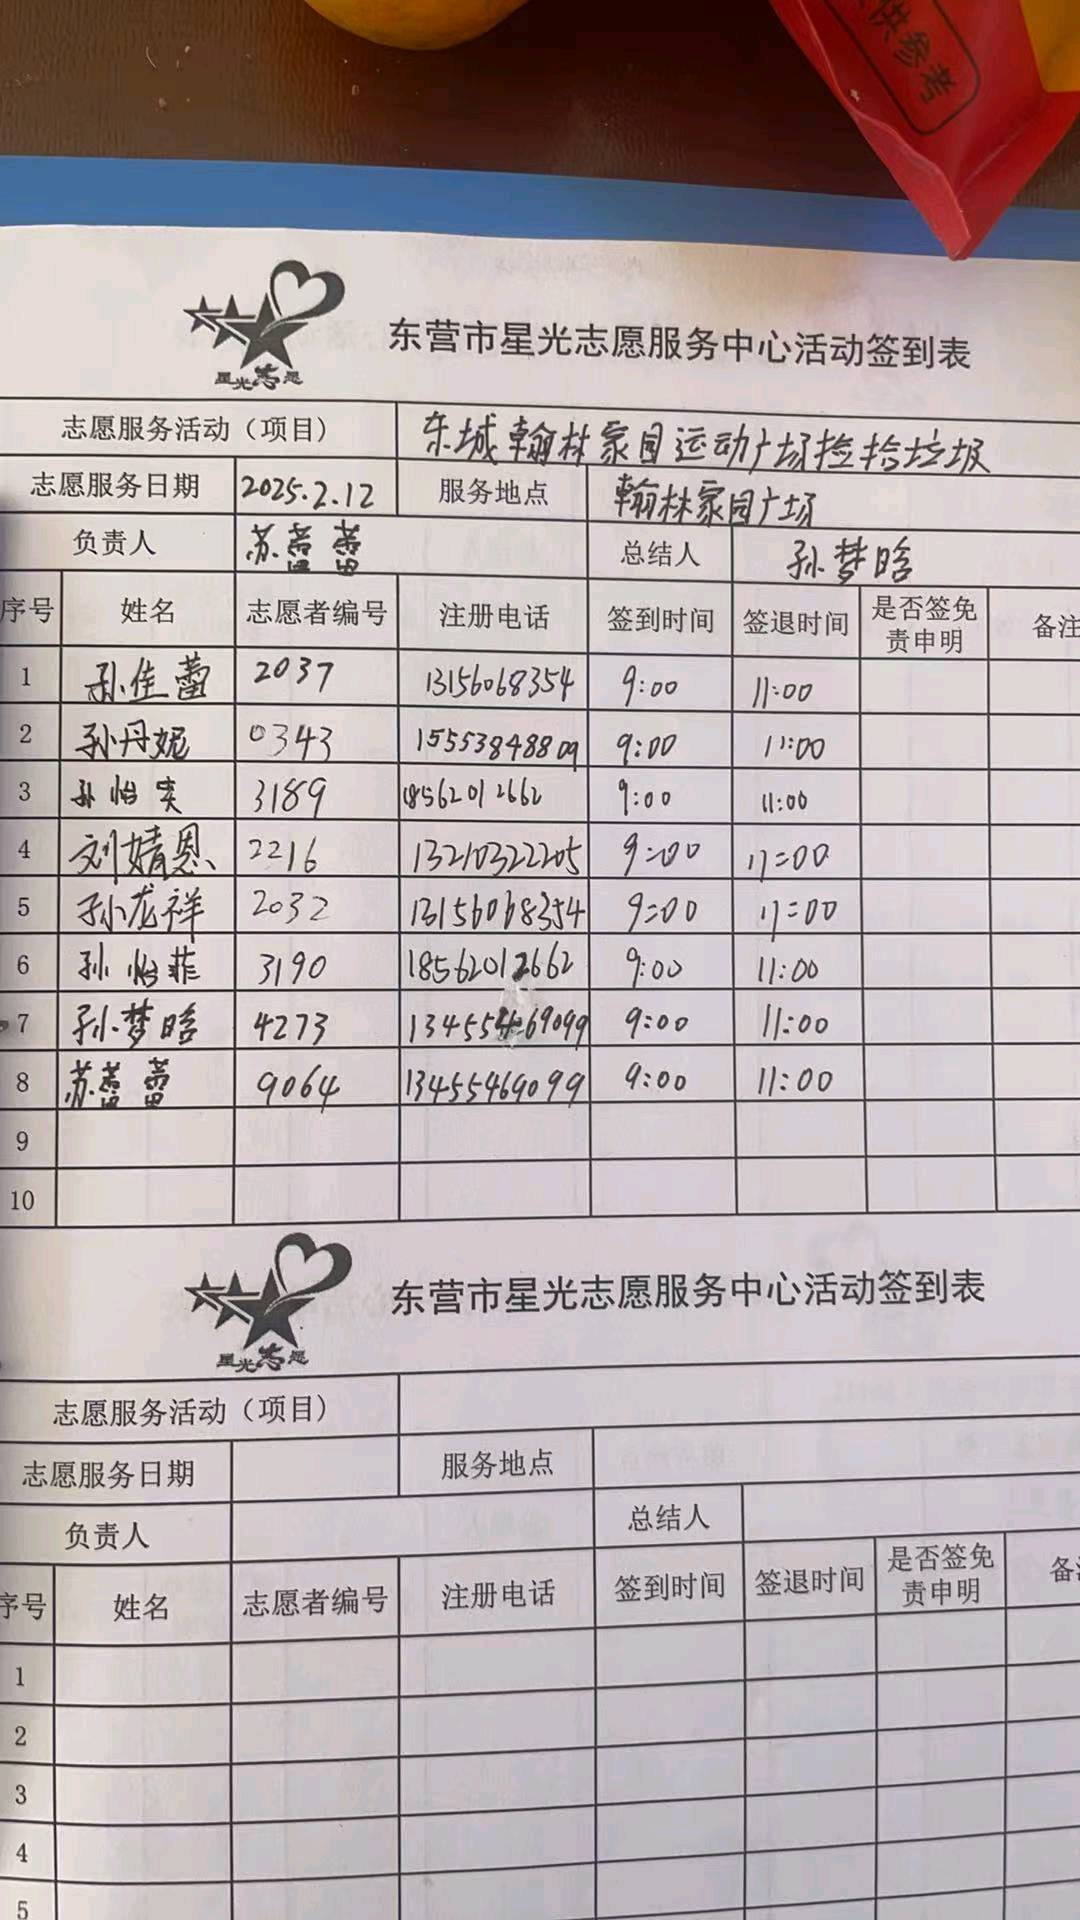 供参考
星光志愿
东营市星光志愿服务中心活动签到表
志愿服务活动（项目） 东城翰林家园运动广场捡拾垃圾
志愿服务日期 2025.2.12 服务地点 翰林家园广场
负责人 苏蕾蕾 总结人 孙梦晗
序号 姓名 志愿者编号 注册电话 签到时间 签退时间 是否签免责申明 备注
1 孙佳蕾 2037 13156068354 9:00 11:00
2 孙丹妮 0343 15553848809 9:00 11:00
3 孙怡奕 3189 18562012662 9:00 11:00
4 刘婧恩 2216 13210322205 9:00 11:00
5 孙龙祥 2032 13156068354 9:00 11:00
6 孙怡菲 3190 18562012662 9:00 11:00
7 孙梦晗 4273 13455469099 9:00 11:00
8 苏蕾蕾 9064 13455469099 9:00 11:00
9
10
星光志愿
东营市星光志愿服务中心活动签到表
志愿服务活动（项目）
志愿服务日期 服务地点
负责人 总结人
序号 姓名 志愿者编号 注册电话 签到时间 签退时间 是否签免责申明 备
1
2
3
4
5